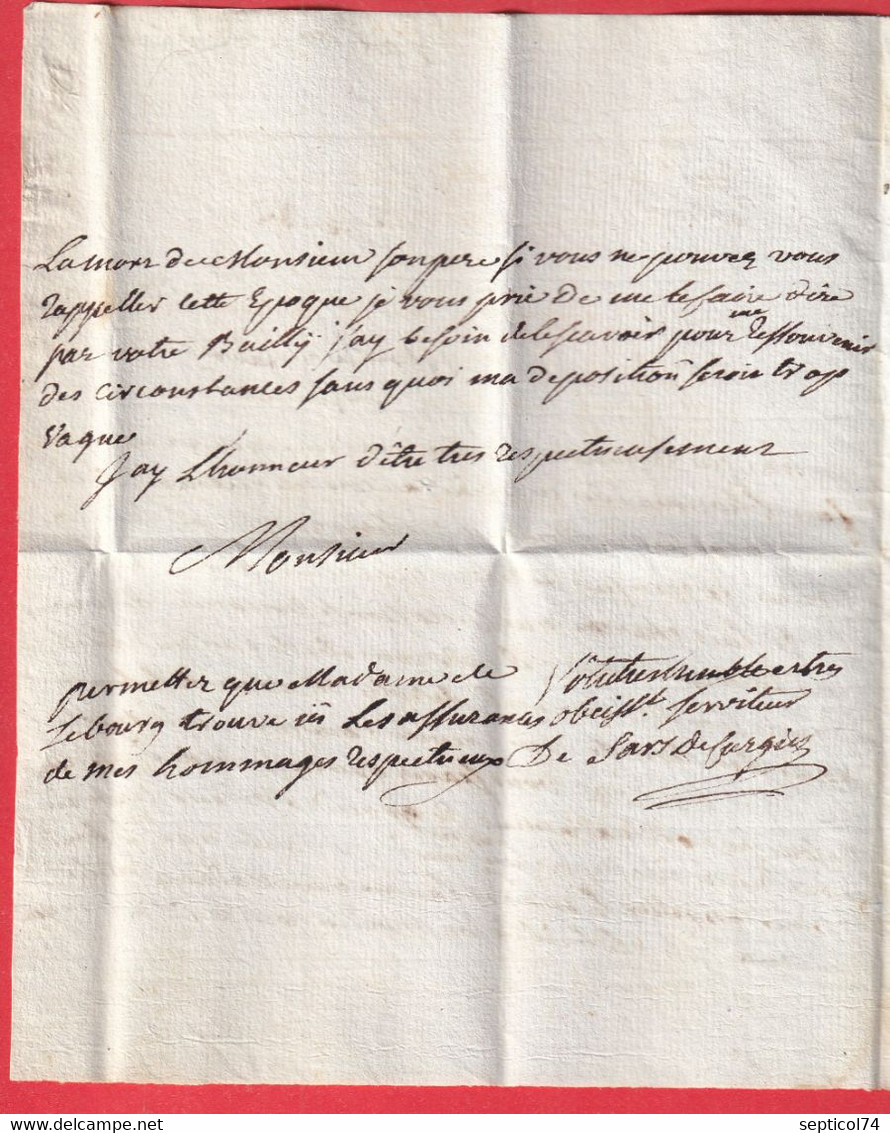 La mort de Monsieur son pere si vous ne pouvez vous
rappeller cette Epoque je vous prie de me le faire dire
par votre Bailly j'ay besoin de le scavoir pour me ressouvenir
des circonstances sans quoi ma deposition seroit trop
vague
J'ay Lhonneur d'être tres respectueusement
Monsieur
permettez que Madame de
Lebourg trouve ici Les assurances
de mes hommages respectueux
Votre tres humble et tres
obeisst. serviteur
De Sars De Curgies
delcampe.net
septicol74